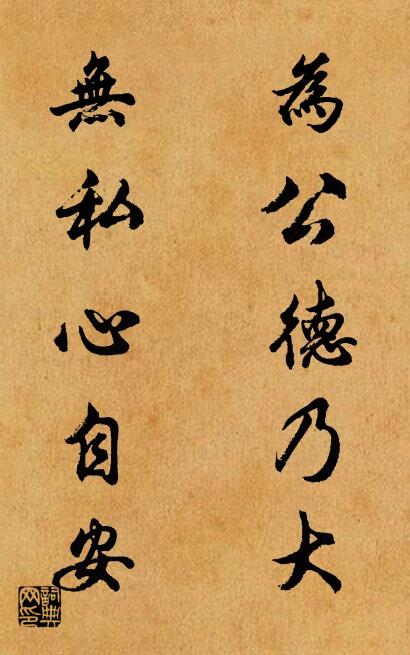 為公德乃大
無私心自安
詞典网印